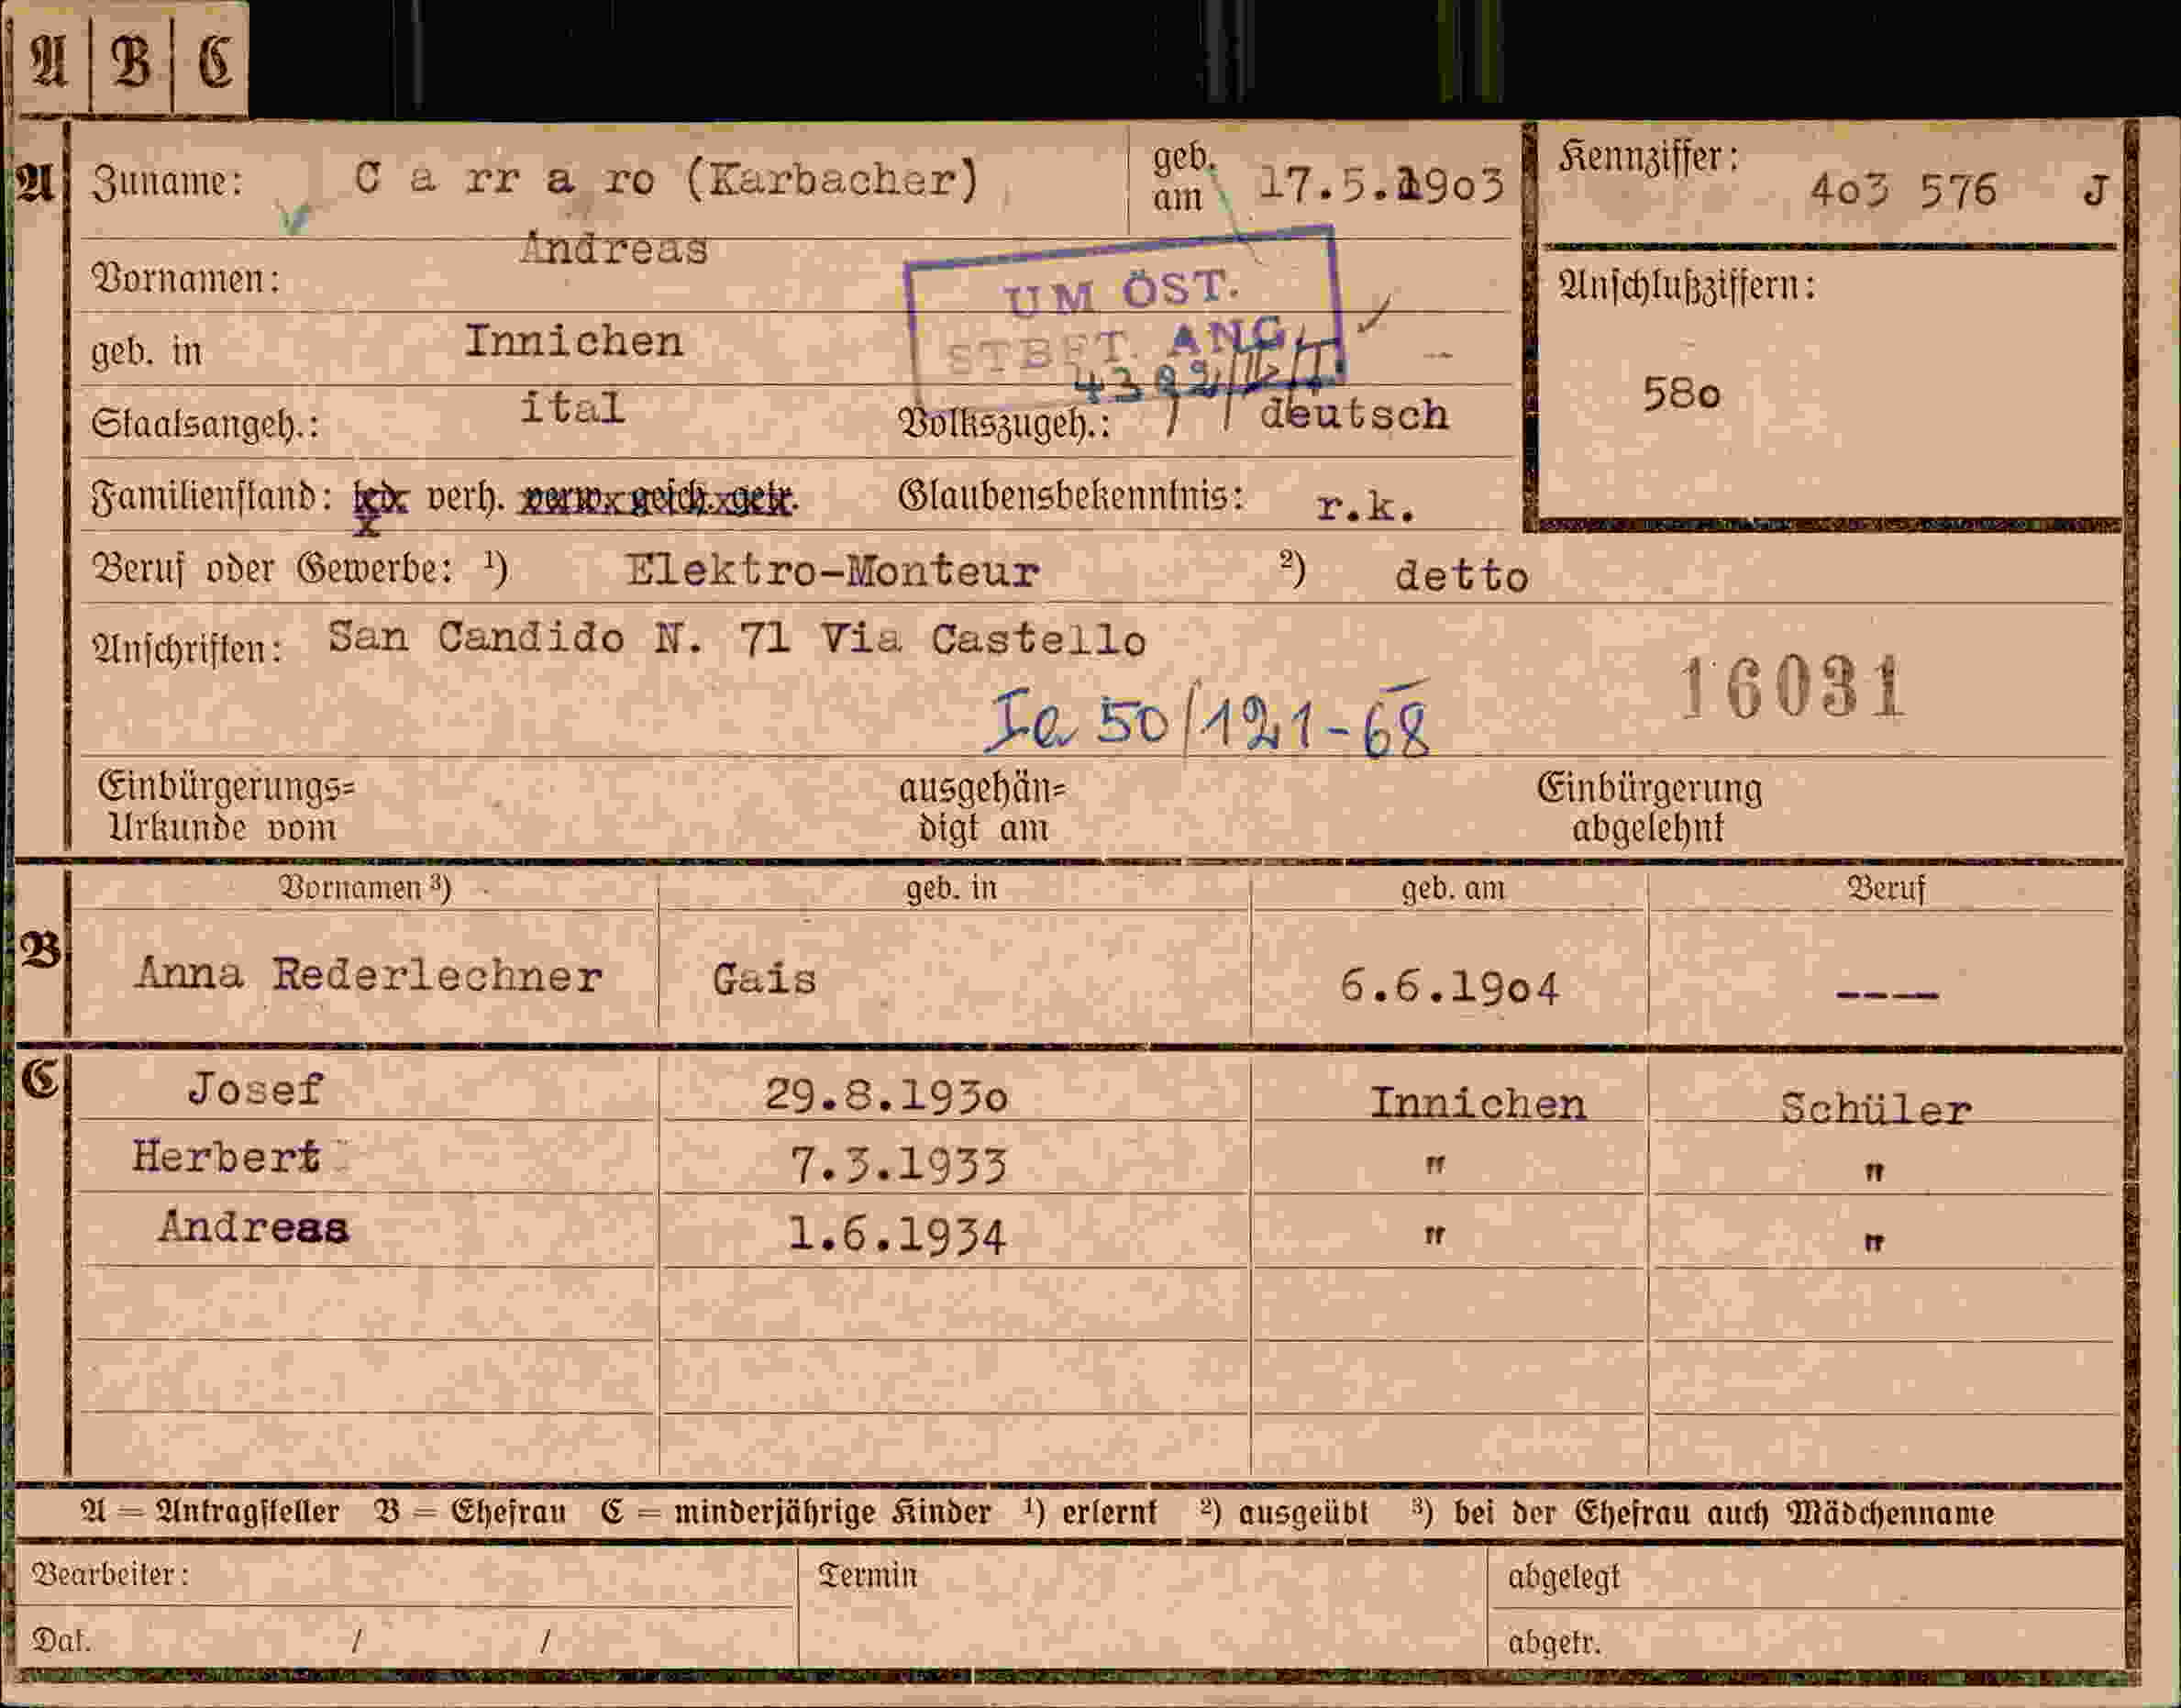 A B C
A Zuname: C a rr a ro (Karbacher) geb. am 17.5.1903 Kennziffer: 403 576 J
Vornamen: Andreas
UM ÖST.
STBFT. ANG.
Anschlußziffern:
580
geb. in Innichen
Staatsangeh.: ital Volkszugeh.: deutsch
Familienstand: led. verh. verw. gesch. getr. Glaubensbekenntnis: r.k.
Beruf oder Gewerbe: ¹) Elektro-Monteur ²) detto
Anschriften: San Candido N. 71 Via Castello
16031
Ia 50/121-68
Einbürgerungs=
Urkunde vom
ausgehän=
digt am
Einbürgerung
abgelehnt
Vornamen ³) geb. in geb. am Beruf
B Anna Rederlechner Gais 6.6.1904 ----
C Josef 29.8.1930 Innichen Schüler
Herbert 7.3.1933 " "
Andreas 1.6.1934 " "
A = Antragsteller B = Ehefrau C = minderjährige Kinder ¹) erlernt ²) ausgeübt ³) bei der Ehefrau auch Mädchenname
Bearbeiter: Termin abgelegt
Dat. / / abgetr.